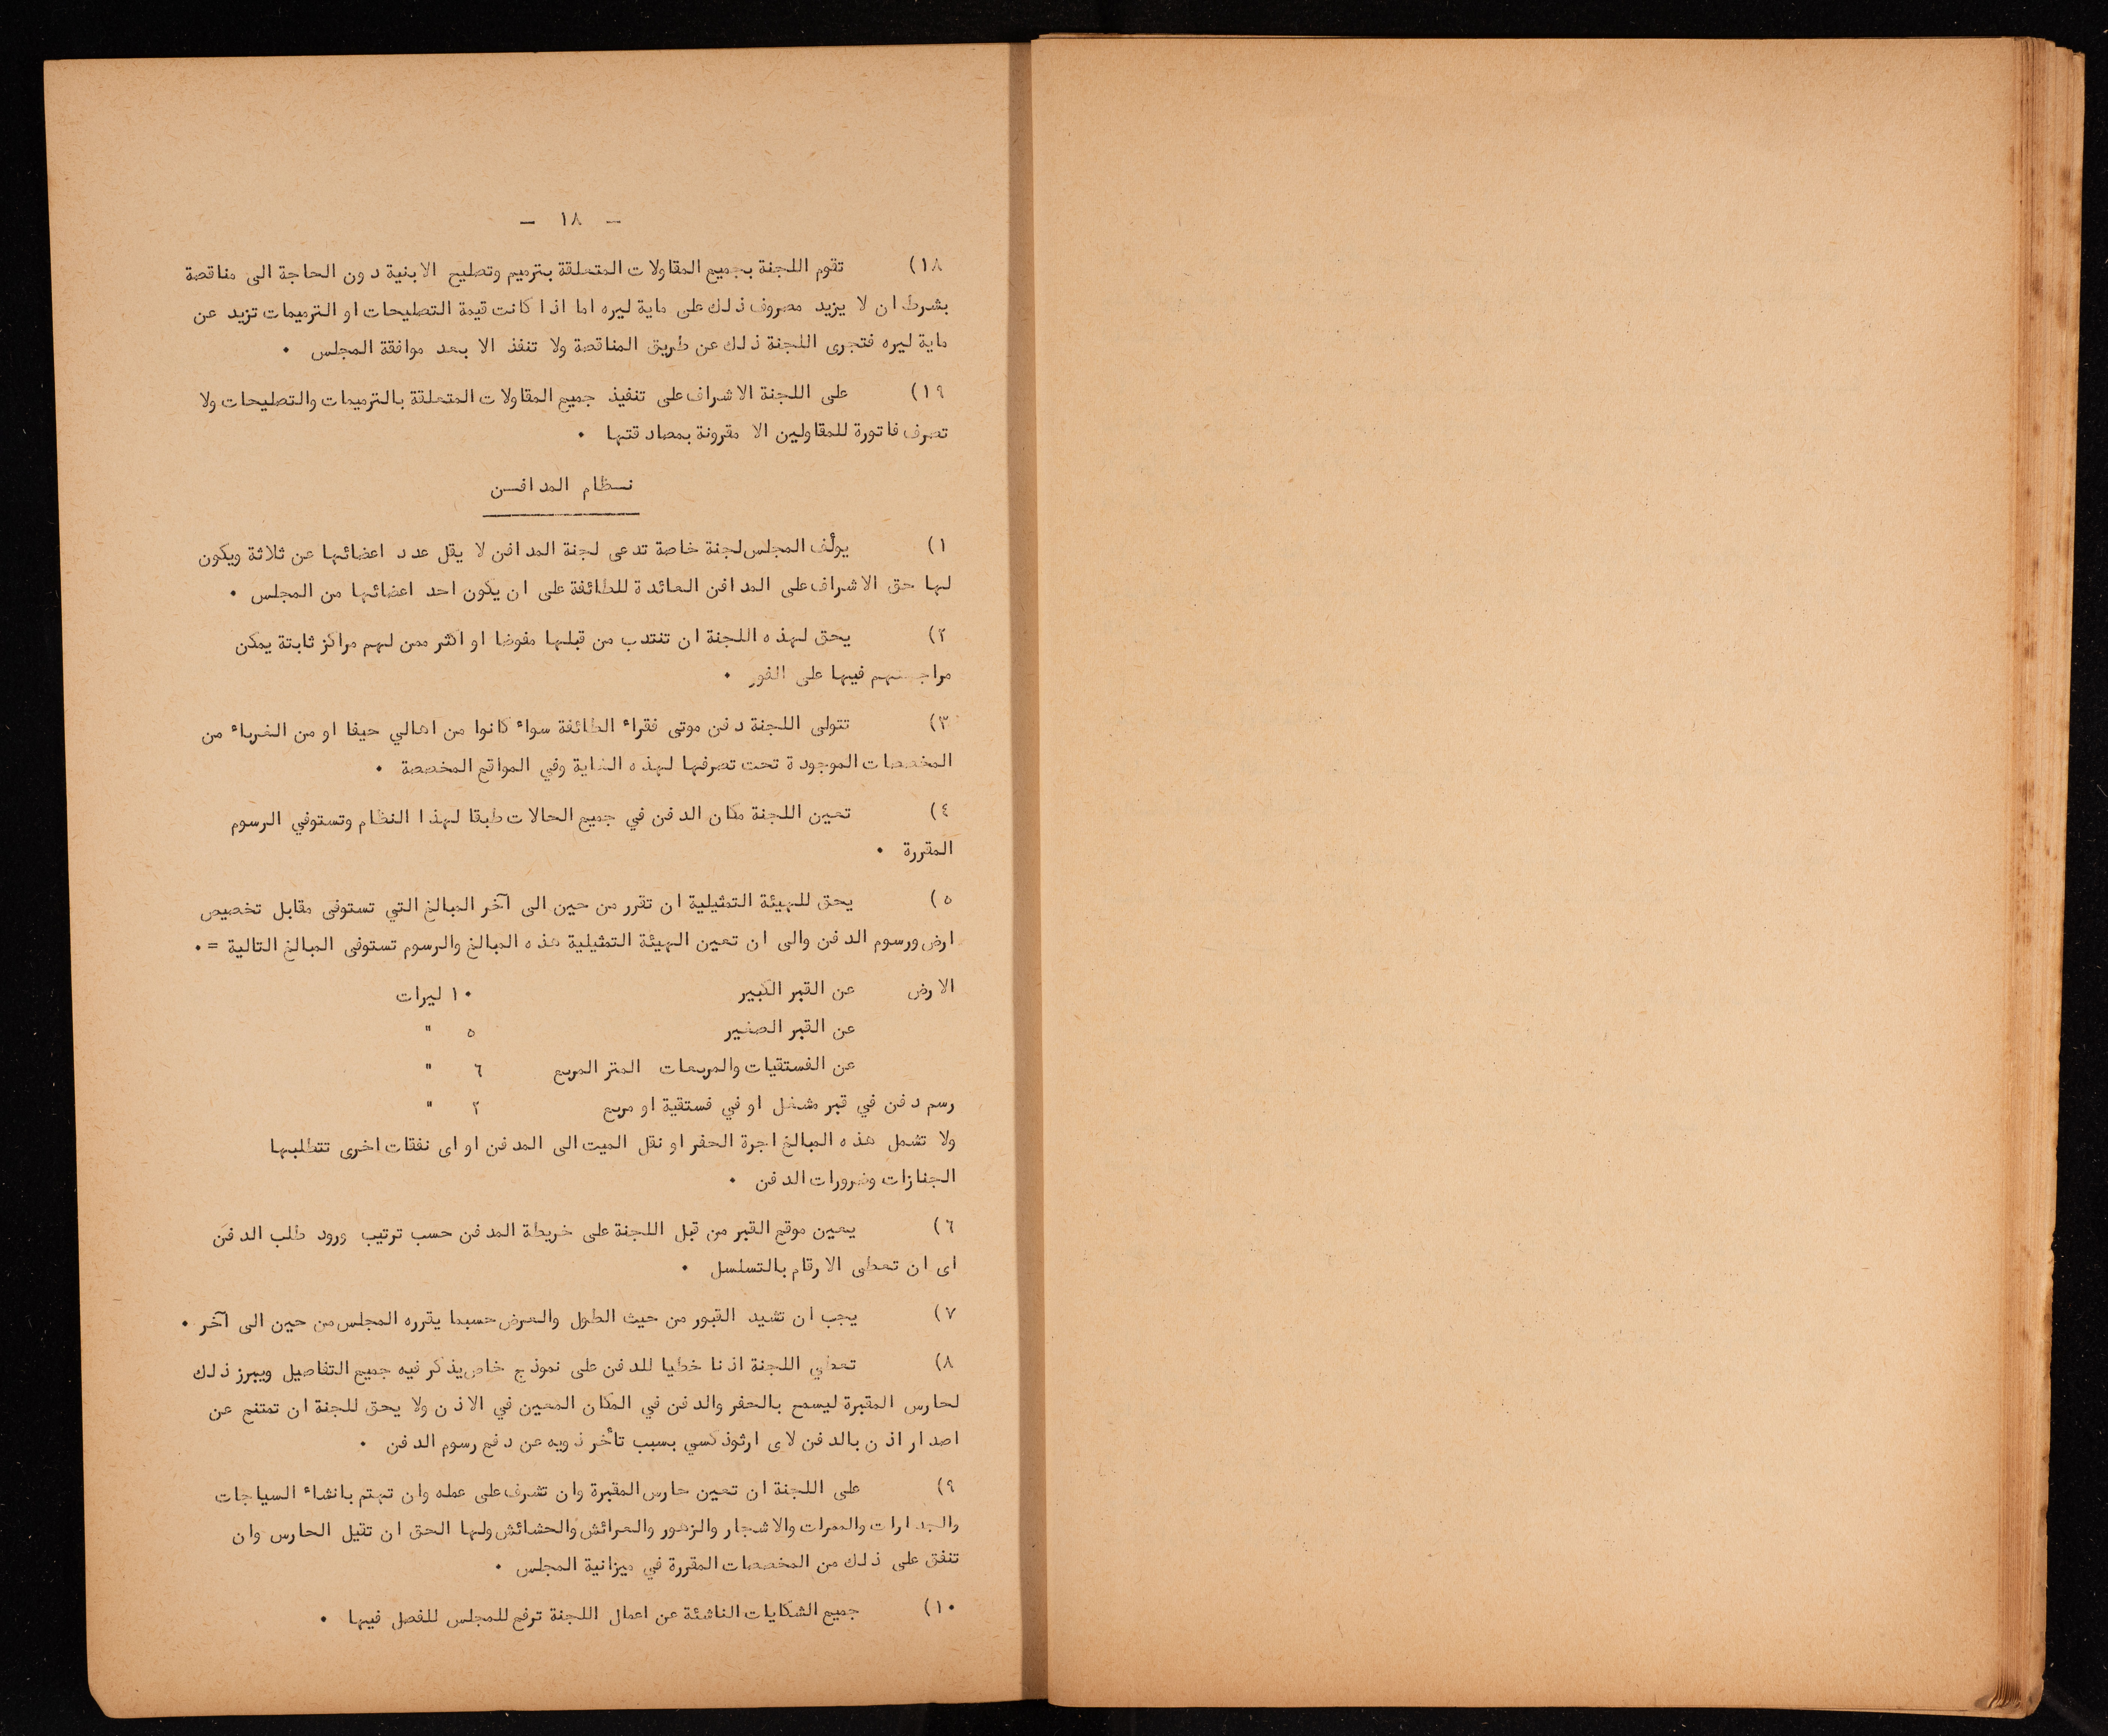 — ١٨ —
١٨) تقوم اللجنة بجميع المقاولات المتعلقة بترميم وتصليح الابنية دون الحاجة الى مناقصة
بشرط ان لا يزيد مصروف ذلك على ماية ليره اما اذا كانت قيمة التصليحات او الترميمات تزيد عن
ماية ليره فتجرى اللجنة ذلك عن طريق المناقصة ولا تنفذ الا بعد موافقة المجلس .
١٩) على اللجنة الاشراف على تنفيذ جميع المقاولات المتعلقة بالترميمات والتصليحات ولا
تصرف فاتورة للمقاولين الا مقرونة بمصادقتها .
نظام المدافن
١) يولف المجلس لجنة خاصة تدعى لجنة المدافن لا يقل عدد اعضائها عن ثلاثة ويكون
لها حق الاشراف على المدافن العائدة للطائفة على ان يكون احد اعضائها من المجلس .
٢) يحق لهذه اللجنة ان تنتدب من قبلها مفوضا او اكثر ممن لهم مراكز ثابتة يمكن
مراجعتهم فيها على الفور .
٣) تتولى اللجنة دفن موتى فقراء الطائفة سواء كانوا من اهالي حيفا او من الغرباء من
المخصصات الموجودة تحت تصرفها لهذه الغاية وفي المواقع المخصصة .
٤) تعين اللجنة مكان الدفن في جميع الحالات طبقا لهذا النظام وتستوفي الرسوم
المقررة .
٥) يحق للهيئة التمثيلية ان تقرر من حين الى آخر المبالغ التي تستوفى مقابل تخصيص
ارض ورسوم الدفن والى ان تعين الهيئة التمثيلية هذه المبالغ والرسوم تستوفى المبالغ التالية = .
الارض عن القبر الكبير ١٠ ليرات
عن القبر الصغير ٥ "
عن الفستقيات والمربعات المتر المربع ٦ "
رسم دفن في قبر مشغل او في فستقية او مربع ٢ "
ولا تشمل هذه المبالغ اجرة الحفر او نقل الميت الى المدفن او اى نفقات اخرى تتطلبها
الجنازات وضرورات الدفن .
٦) يعين موقع القبر من قبل اللجنة على خريطة المدفن حسب ترتيب ورود طلب الدفن
اى ان تعطى الارقام بالتسلسل .
٧) يجب ان تشيد القبور من حيث الطول والعرض حسبما يقرره المجلس من حين الى آخر .
٨) تعطي اللجنة اذنا خطيا للدفن على نموذج خاص يذكر فيه جميع التفاصيل ويبرز ذلك
لحارس المقبرة ليسمح بالحفر والدفن في المكان المعين في الاذن ولا يحق للجنة ان تمتنع عن
اصدار اذن بالدفن لاى ارثوذكسي بسبب تأخر ذويه عن دفع رسوم الدفن .
٩) على اللجنة ان تعين حارس المقبرة وان تشرف على عمله وان تهتم بانشاء السياجات
والجدارات والممرات والاشجار والزهور والعرائش والحشائش ولها الحق ان تقيل الحارس وان
تنفق على ذلك من المخصصات المقررة في ميزانية المجلس .
١٠) جميع الشكايات الناشئة عن اعمال اللجنة ترفع للمجلس للفصل فيها .